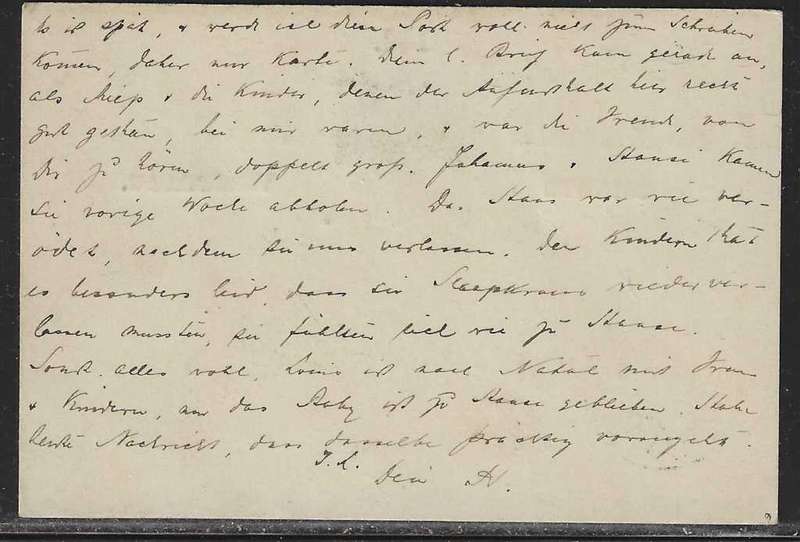 Es ist spät, & werde ich diese Post wohl nicht zum Schreiben
kommen, daher nur Karte. Dein l. Brief kam gerade an,
als Miep & die Kinder, denen der Aufenthalt hier recht
gut gethan, bei mir waren, & war die Freude, von
Dir zu hören, doppelt gross. Johannes & Hansi kamen
sie vorige Woche abholen. Das Haus war wie ver-
ödet, nachdem sie uns verlassen. Den Kindern that
es besonders leid, dass sie wieder ver-
lassen mussten, sie fühlten sich wie zu Hause.
Sonst alles wohl, Louis ist nach Natal mit Frau
& Kindern, nur das Baby ist zu Hause geblieben. Habe
heute Nachricht, dass dasselbe prächtig vorangeht.
Dein